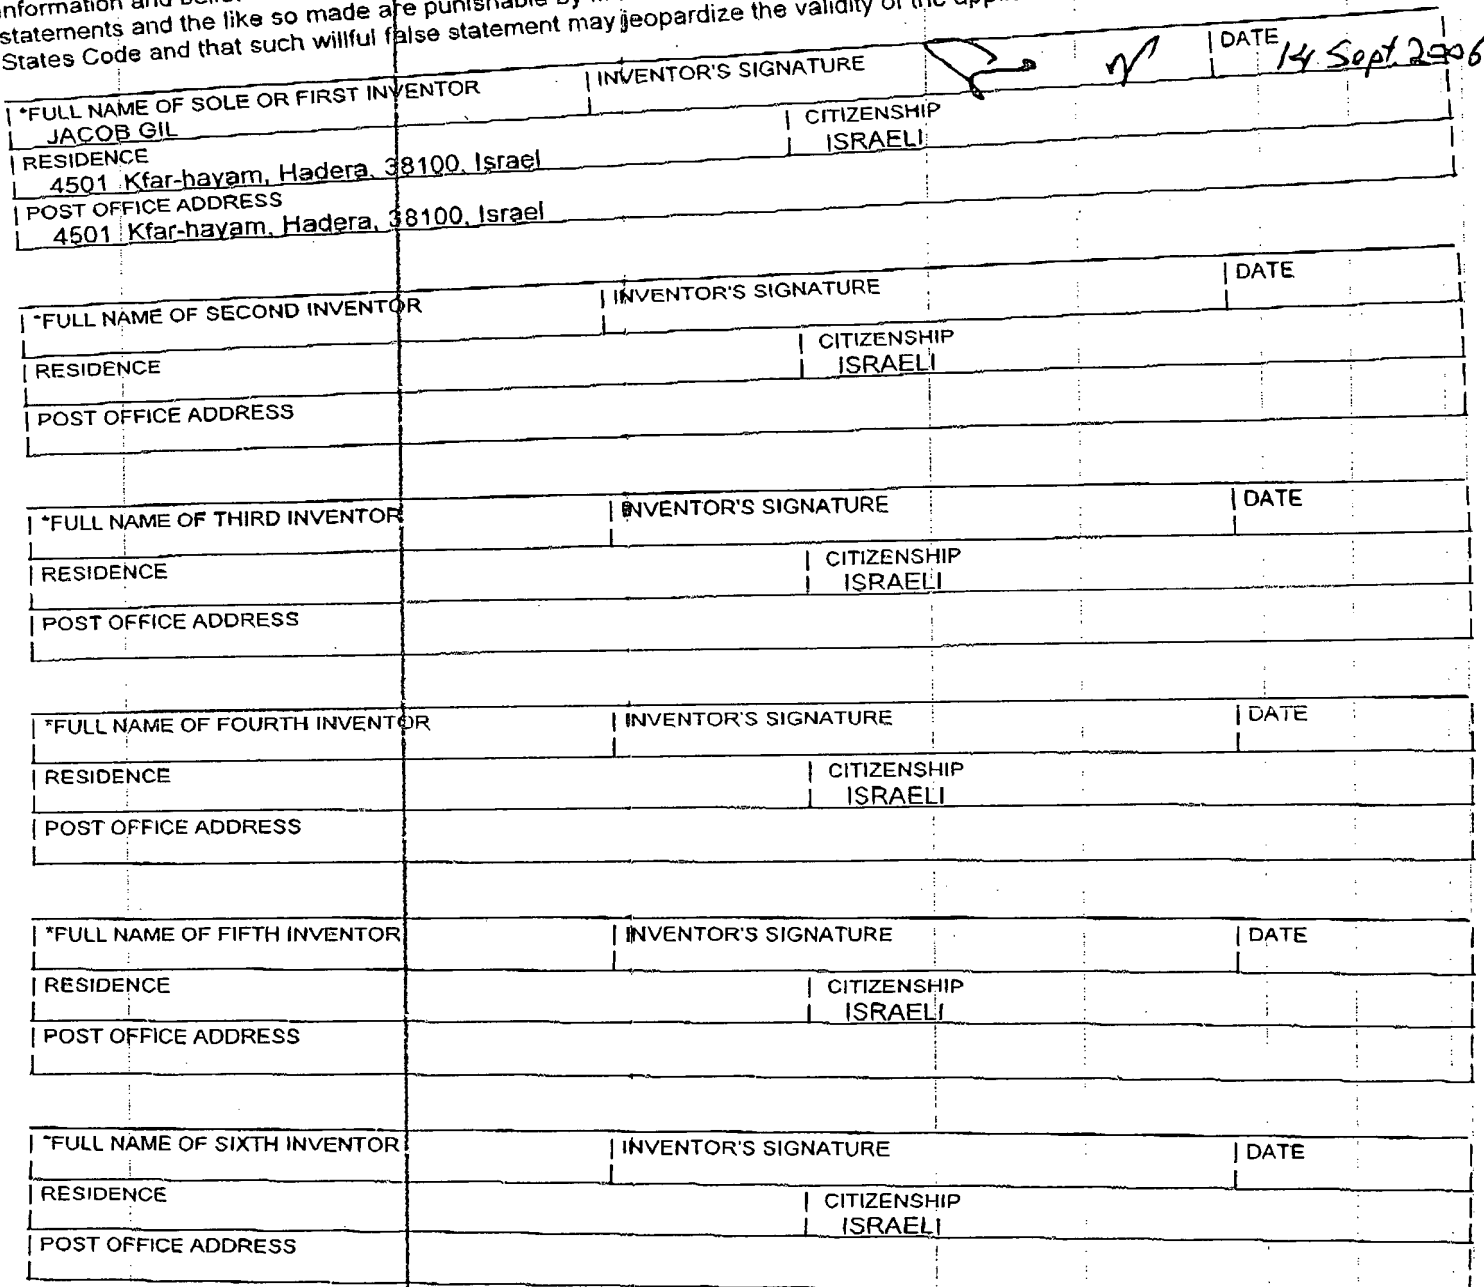 information and
statements and the like so made are punishable by
States Code and that such willful false statement may jeopardize the validity of the
*FULL NAME OF SOLE OR FIRST INVENTOR INVENTOR'S SIGNATURE DATE 14 Sept. 2006
JACOB GIL
RESIDENCE CITIZENSHIP
4501 Kfar-hayam, Hadera, 38100, Israel ISRAELI
POST OFFICE ADDRESS
4501 Kfar-hayam, Hadera, 38100, Israel
*FULL NAME OF SECOND INVENTOR INVENTOR'S SIGNATURE DATE
RESIDENCE CITIZENSHIP
ISRAELI
POST OFFICE ADDRESS
*FULL NAME OF THIRD INVENTOR INVENTOR'S SIGNATURE DATE
RESIDENCE CITIZENSHIP
ISRAELI
POST OFFICE ADDRESS
*FULL NAME OF FOURTH INVENTOR INVENTOR'S SIGNATURE DATE
RESIDENCE CITIZENSHIP
ISRAELI
POST OFFICE ADDRESS
*FULL NAME OF FIFTH INVENTOR INVENTOR'S SIGNATURE DATE
RESIDENCE CITIZENSHIP
ISRAELI
POST OFFICE ADDRESS
*FULL NAME OF SIXTH INVENTOR INVENTOR'S SIGNATURE DATE
RESIDENCE CITIZENSHIP
ISRAELI
POST OFFICE ADDRESS